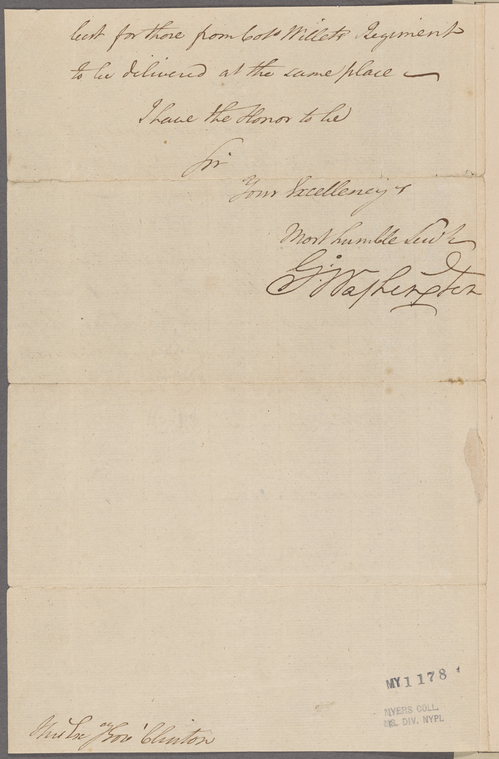 but for those from Colo. Willets Regiment
to be delivered at the same place —
I have the Honor to be
Sir
Your Excellency's
Most humble Servt
Go: Washington
MY 1178
MYERS COLL.
MS. DIV. NYPL
Gov. Clinton